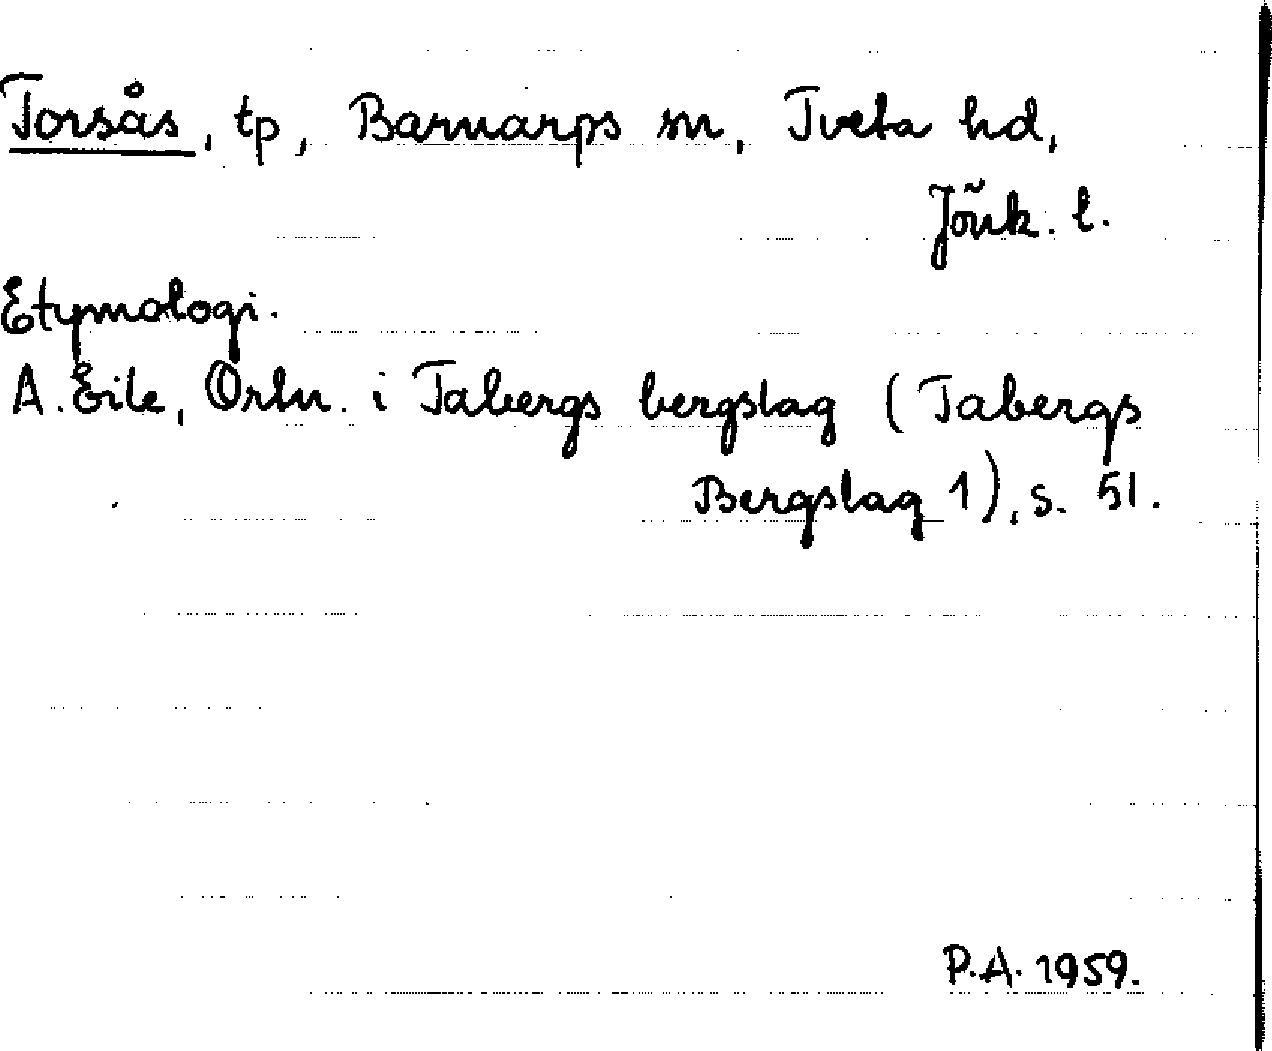 Torsås, tp, Barnarps sn, Tveta hd,
Jönk. l.
Etymologi.
A. Eile, Ortn. i Tabergs bergslag (Tabergs
Bergslag 1), s. 51.
P.A. 1959.